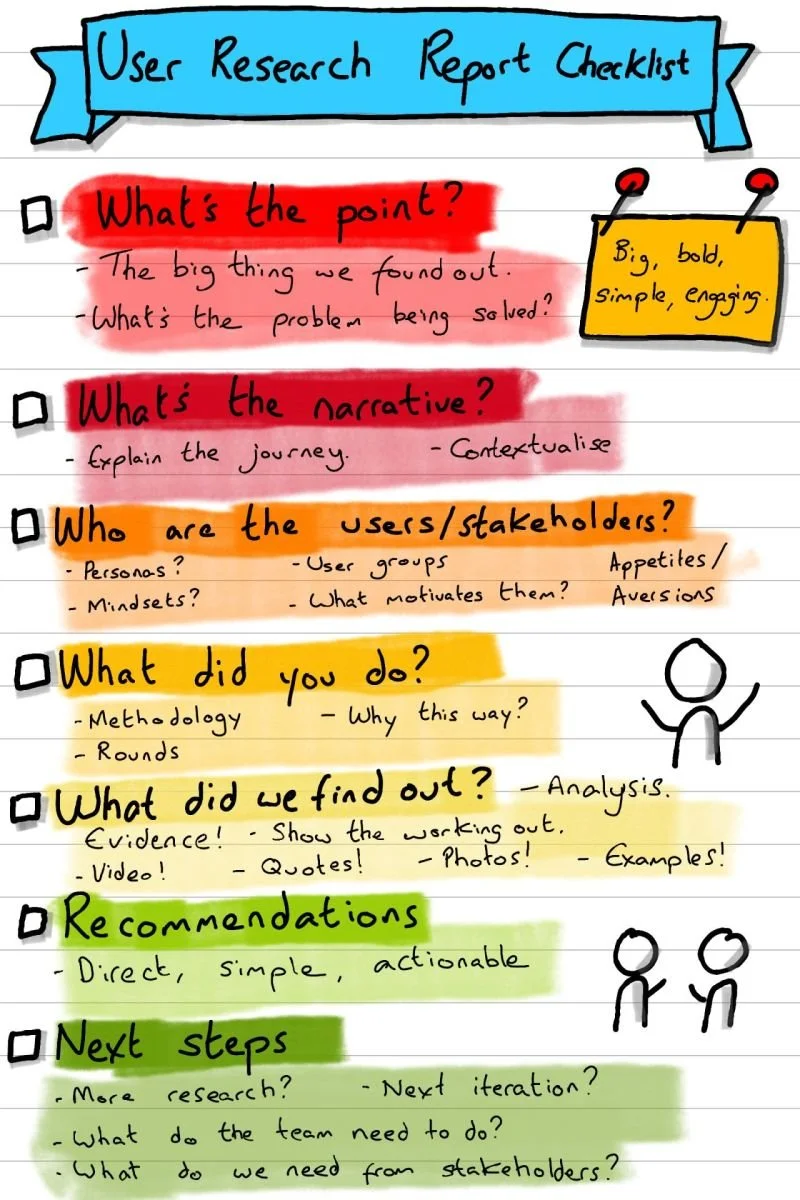 User Research Report Checklist
What's the point?
- The big thing we found out.
- What's the problem being solved?
Big, bold,
simple, engaging.
What's the narrative?
- Explain the journey. - Contextualise
Who are the users/stakeholders?
- Personas? - User groups Appetites/
- Mindsets? - What motivates them? Aversions
What did you do?
- Methodology - Why this way?
- Rounds
What did we find out? - Analysis.
Evidence! - Show the working out.
- Video! - Quotes! - Photos! - Examples!
Recommendations
- Direct, simple, actionable
Next steps
- More research? - Next iteration?
- What do the team need to do?
- What do we need from stakeholders?